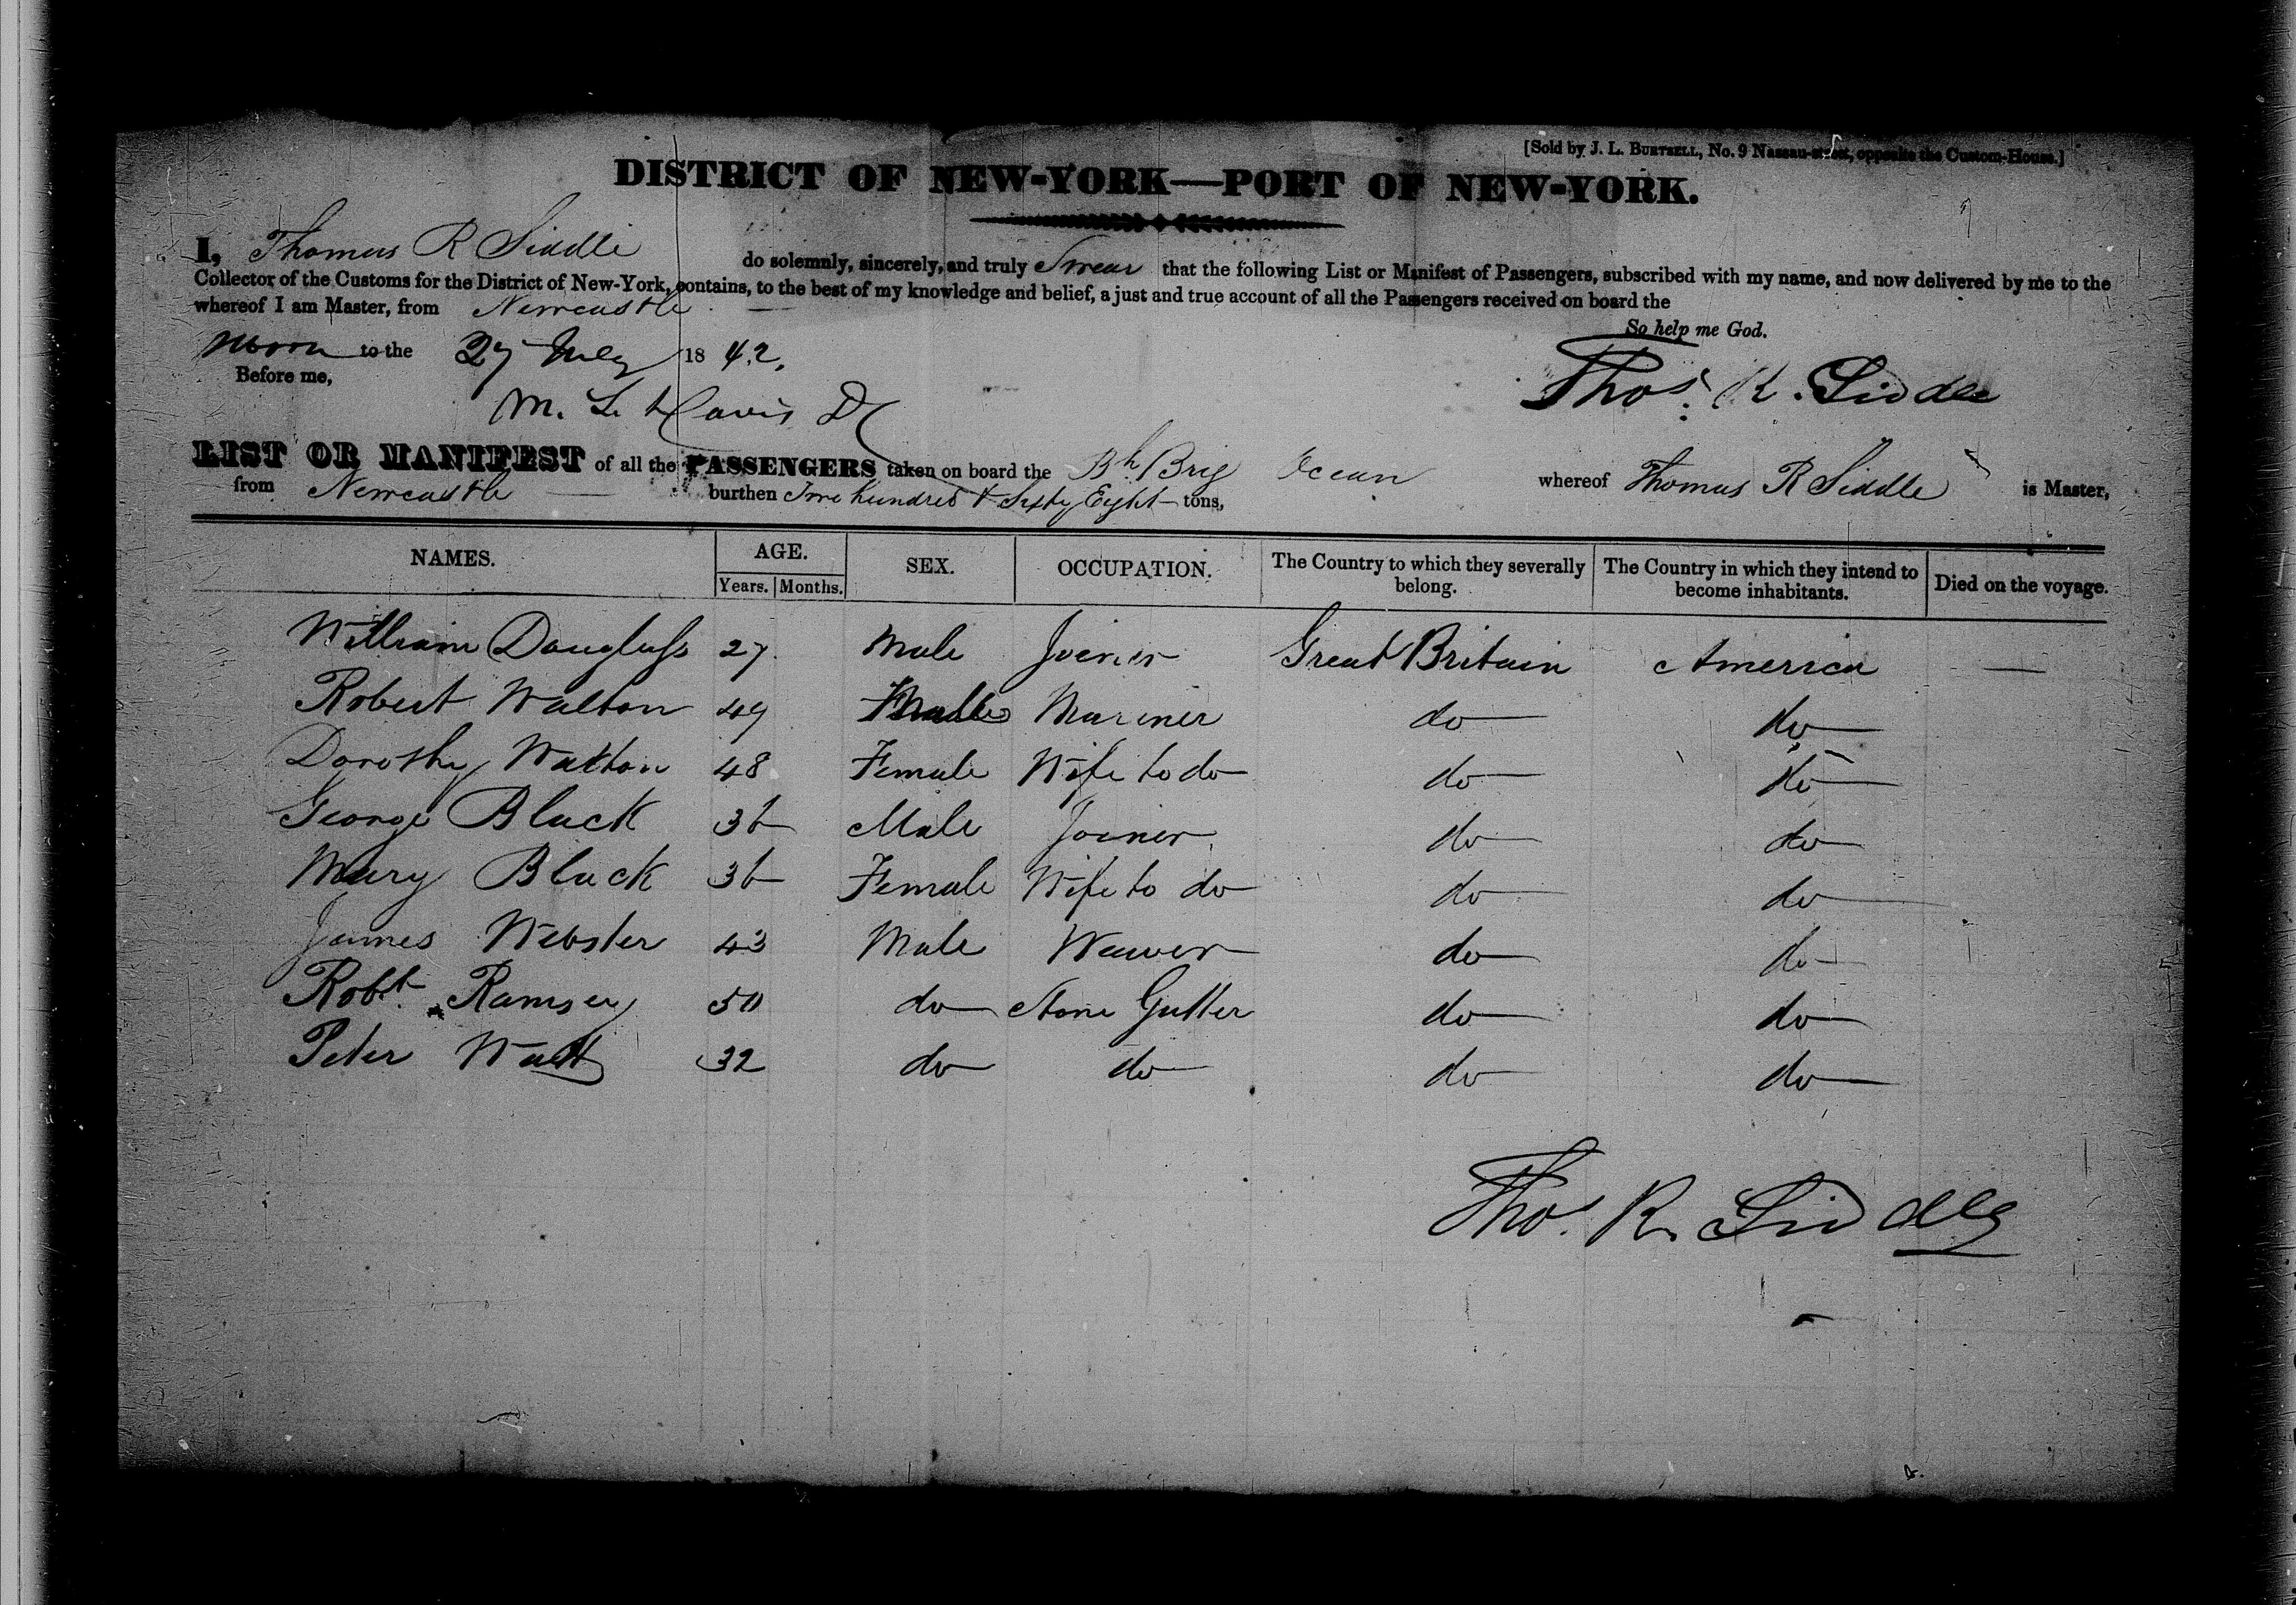 [Sold by J. L. BURTSELL, No. 9 Nassau-street, opposite the Custom-House.]
DISTRICT OF NEW-YORK—PORT OF NEW-YORK.
I, Thomas R Siddle do solemnly, sincerely, and truly Swear that the following List or Manifest of Passengers, subscribed with my name, and now delivered by me to the
Collector of the Customs for the District of New-York, contains, to the best of my knowledge and belief, a just and true account of all the Passengers received on board the
whereof I am Master, from Newcastle
So help me God.
Sworn to the 27 July 1842.
Thos. R. Siddle
Before me,
M. L. Davis DC
LIST OR MANIFEST of all the PASSENGERS taken on board the Bh Brig Ocean whereof Thomas R Siddle is Master,
from Newcastle burthen Two hundred & Sixty Eight tons,
NAMES. AGE. SEX. OCCUPATION. The Country to which they severally belong. The Country in which they intend to become inhabitants. Died on the voyage.
Years. Months.
William Douglass 27 Male Joiner Great Britain America —
Robert Walton 49 Male Mariner do do
Dorothy Walton 48 Female Wife to do do do
George Black 36 Male Joiner do do
Mary Black 36 Female Wife to do do do
James Webster 43 Male Weaver do do
Robt. Ramsey 50 do Stone Cutter do do
Peter Watt 32 do do do do
Thos. R. Siddle